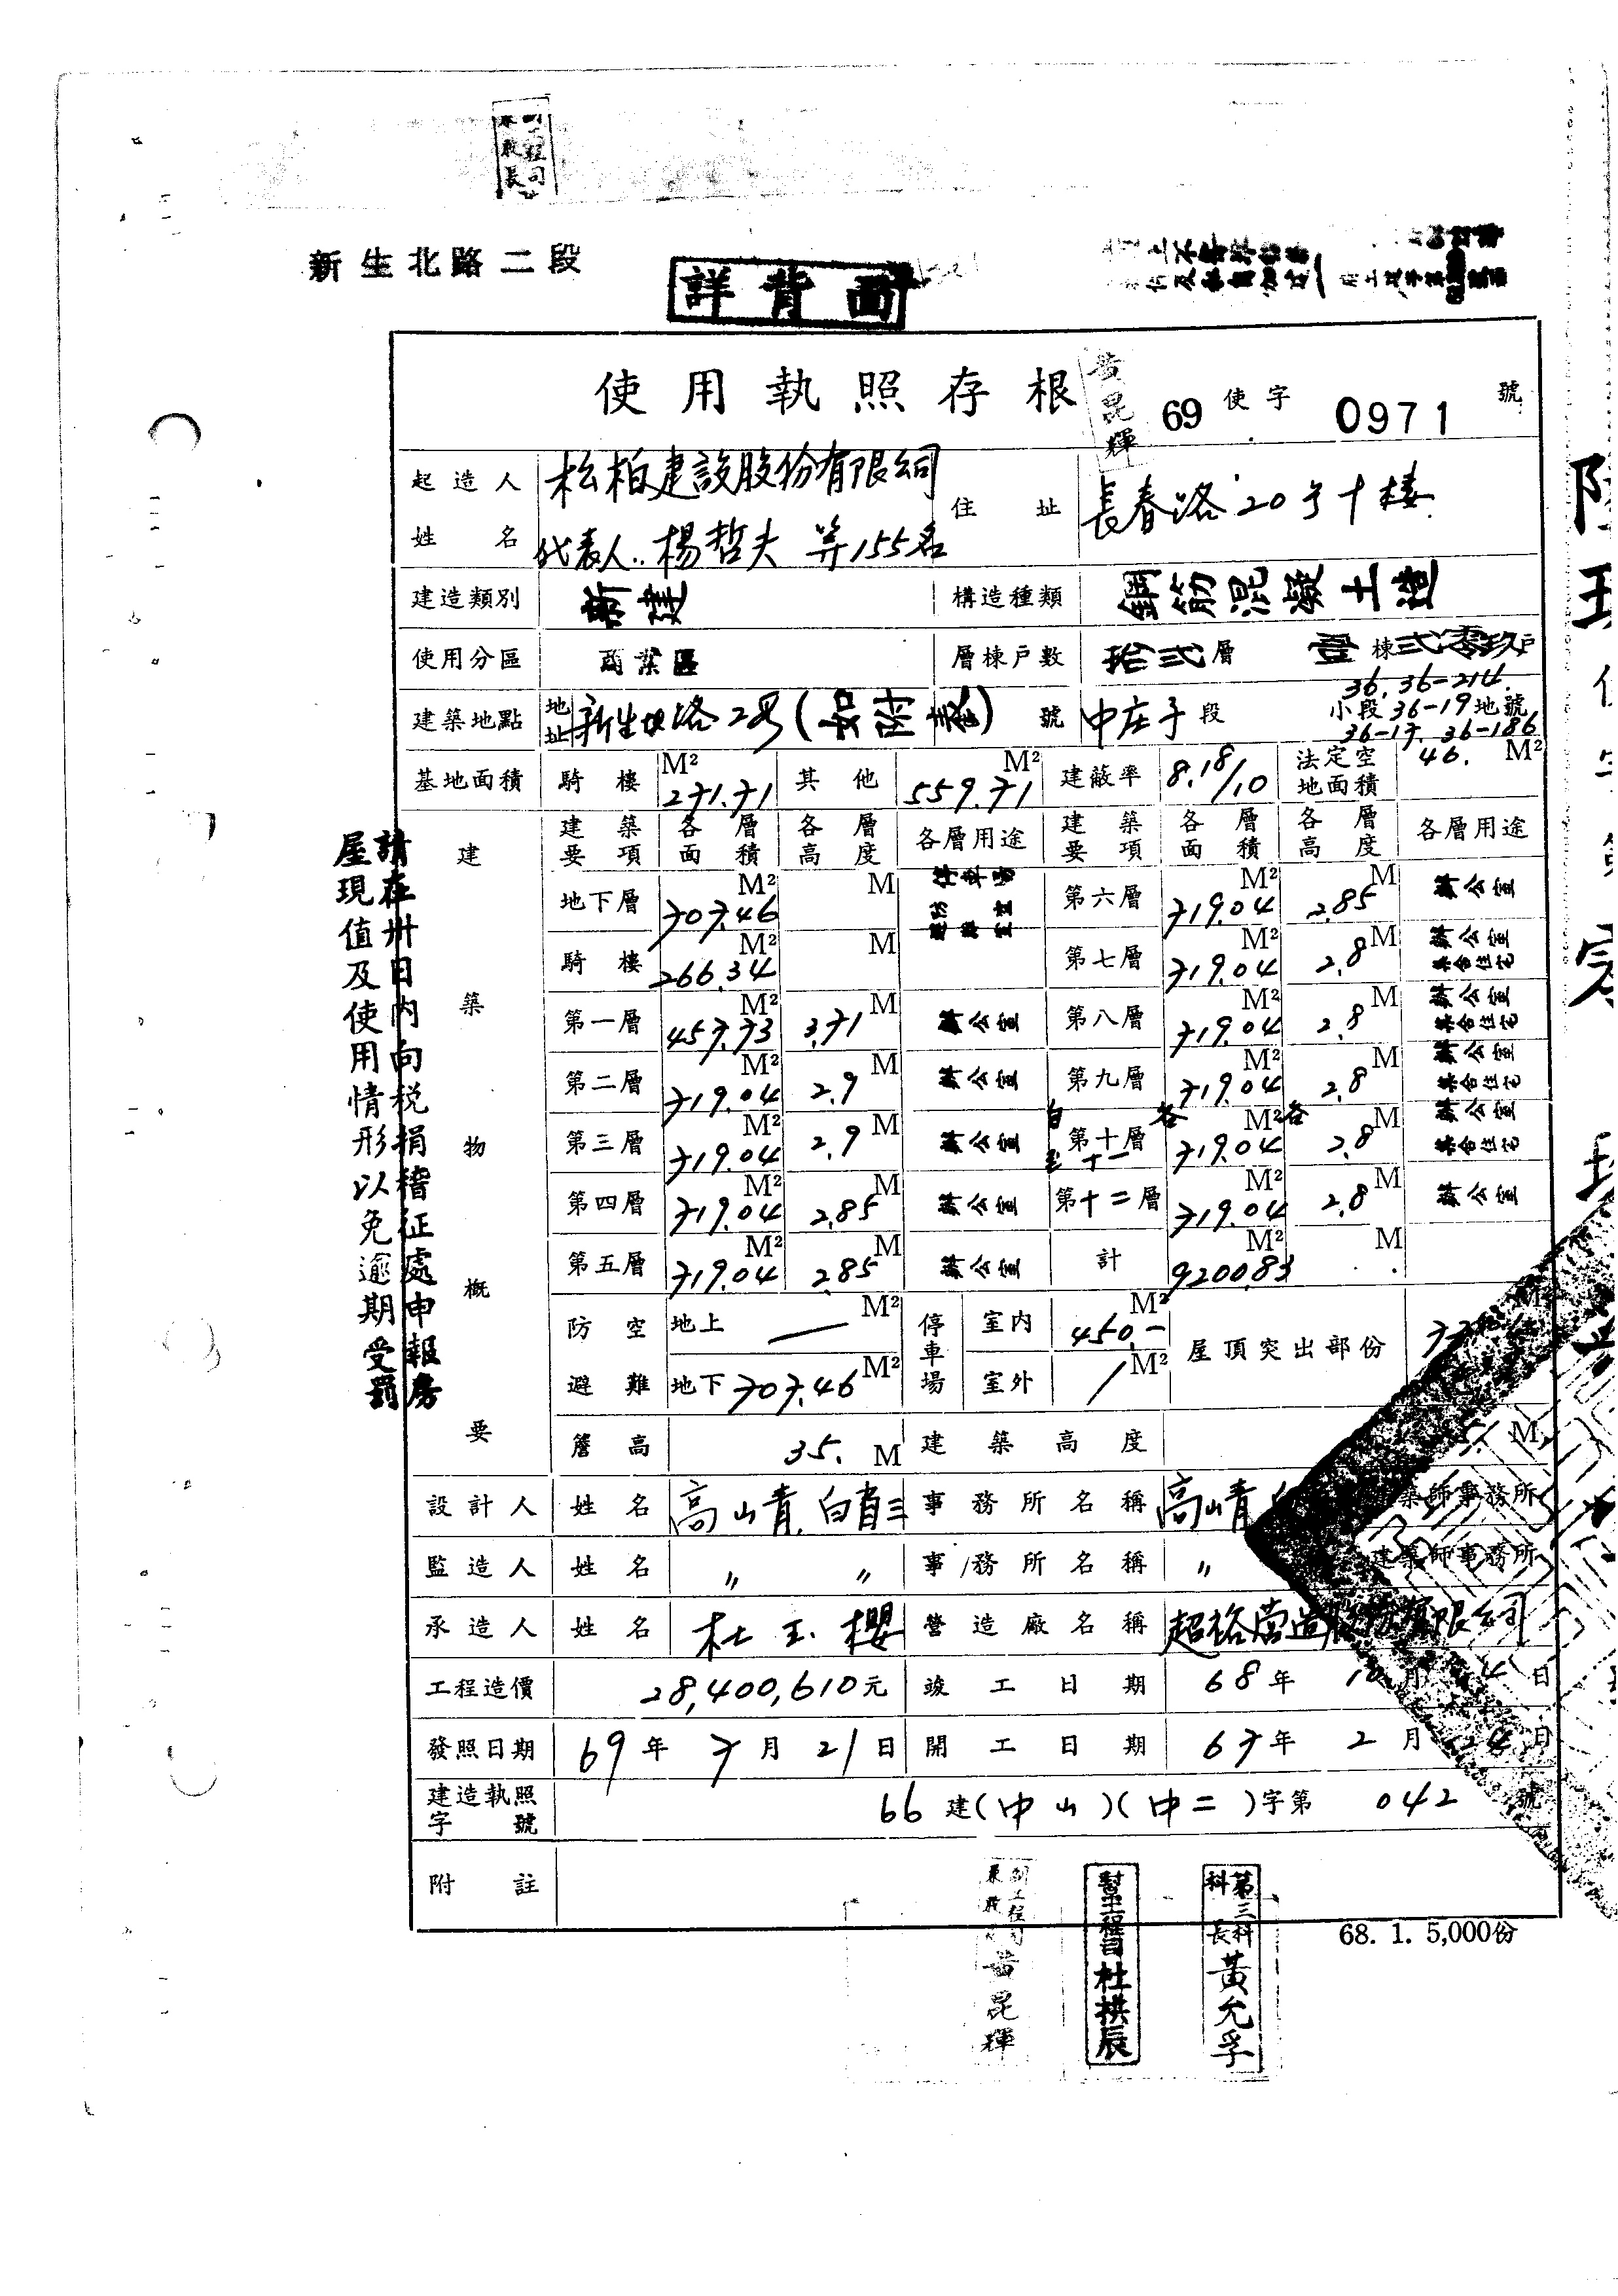 新生北路二段
詳背面
使用執照存根 69 使字 0971 號
黃昆輝
起造人姓名 松柏建設股份有限公司 住址 長春路20号十樓
代表人:楊哲夫 等155名
建造類別 新建 構造種類 鋼筋混凝土造
使用分區 商業區 層棟戶數 拾弍層 壹棟弍零玖戶
36. 36-214.
建築地點 地址 新生北路2号 號 中庄子段 小段36-19地號
36-17. 36-186
基地面積 騎樓 271.71 M² 其他 559.71 M² 建蔽率 8.18/10 法定空地面積 46. M²
建築物概要
建築要項 各層面積 各層高度 各層用途 建築要項 各層面積 各層高度 各層用途
地下層 707.46 M² M 停車場 第六層 719.04 M² 2.85 M 辦公室
騎樓 266.34 M² M 第七層 719.04 M² 2.8 M 辦公室 集合住宅
第一層 457.73 M² 3.71 M 辦公室 第八層 719.04 M² 2.8 M 辦公室 集合住宅
第二層 719.04 M² 2.9 M 辦公室 第九層 719.04 M² 2.8 M 辦公室 集合住宅
第三層 719.04 M² 2.9 M 辦公室 自第十層至十一 各 719.04 M² 各 2.8 M 辦公室 集合住宅
第四層 719.04 M² 2.85 M 辦公室 第十二層 719.04 M² 2.8 M 辦公室
第五層 719.04 M² 2.85 M 辦公室 計 9200.83 M² M
防空避難 地上 — M² 停車場 室內 450.- M² 屋頂突出部份
地下 707.46 M² 室外 / M²
簷高 35. M 建築高度 M
設計人 姓名 高山青 白省三 事務所名稱 高山青 建築師事務所
監造人 姓名 〃 〃 事務所名稱 〃 建築師事務所
承造人 姓名 杜玉櫻 營造廠名稱 超裕營造股份有限公司
工程造價 28,400,610元 竣工日期 68年 10月 日
發照日期 69年7月21日 開工日期 67年2月24日
建造執照字號 66建(中山)(中二)字第 042 號
附註
68. 1. 5,000份
請在卅日內向稅捐稽征處申報房
屋現值及使用情形以免逾期受罰
副工程司 黃昆輝
幫工程司 杜拱辰
第三科科長 黃允孚